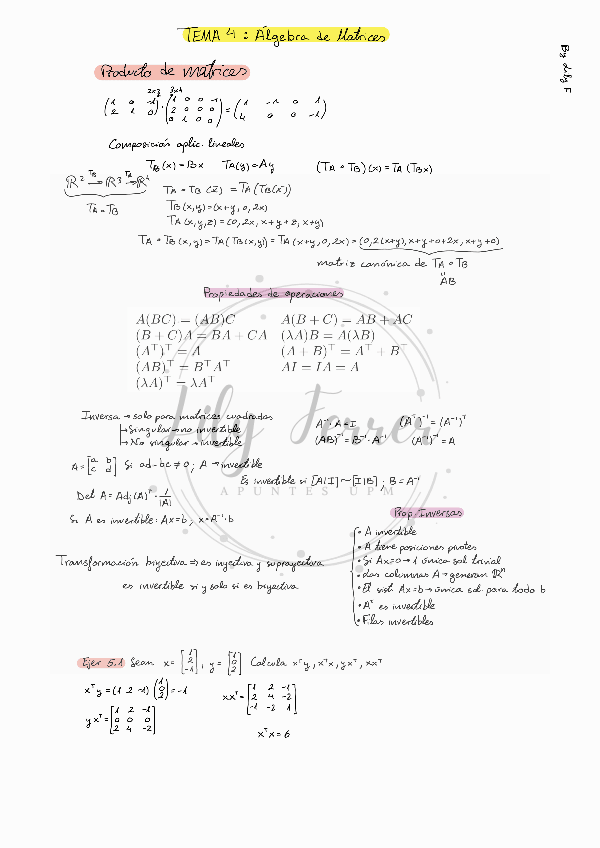 TEMA 4 : Álgebra de Matrices
By Lily F
Producto de matrices
2x3 3x4
(1 0 -1; 2 1 0) · (1 0 0 -1; 2 0 0 0; 0 1 0 0) = (1 -1 0 1; 4 0 0 -1)
Composición aplic. lineales
TB(x) = Bx TA(y) = Ay (TA ∘ TB)(x) = TA(TBx)
TA ∘ TB (x) = TA(TB(x))
TA ∘ TB
TB(x,y) = (x+y, 0, 2x)
TA(x,y,z) = (0, 2x, x+y+z, x+y)
TA ∘ TB(x,y) = TA(TB(x,y)) = TA(x+y, 0, 2x) = (0, 2(x+y), x+y+0+2x, x+y+0)
matriz canónica de TA ∘ TB
AB
Propiedades de operaciones
A(BC) = (AB)C A(B + C) = AB + AC
(B + C)A = BA + CA (λA)B = A(λB)
(A⊤)⊤ = A (A + B)⊤ = A⊤ + B⊤
(AB)⊤ = B⊤A⊤ AI = IA = A
(λA)⊤ = λA⊤
Lily Ferrer
APUNTES UPM
Inversa → solo para matrices cuadradas
→ Singular → no invertible
→ No singular → invertible
A⁻¹ · A = I (Aᵀ)⁻¹ = (A⁻¹)ᵀ
(AB)⁻¹ = B⁻¹ · A⁻¹ (A⁻¹)⁻¹ = A
A = [a b; c d] Si ad - bc ≠ 0 ; A → invertible
Es invertible si [A|I] ~ [I|B] ; B = A⁻¹
Det A = Adj(A)ᵀ · 1/|A|
Si A es invertible: Ax = b ; x = A⁻¹ · b
Prop. Inversas
• A invertible
• A tiene posiciones pivotes
• Si Ax = 0 → 1 única sol trivial
• Las columnas A → generan ℝⁿ
• El sist Ax = b → única sol. para todo b
• Aᵀ es invertible
• F.las invertibles
Transformación biyectiva ⇒ es inyectiva y suprayectiva
es invertible si y solo si es biyectiva
Ejer 5.1 Sean x = [1; 2; -1], y = [1; 0; 2] Calcula xᵀy, xᵀx, yxᵀ, xxᵀ
xᵀy = (1 2 -1) (1; 0; 2) = -1
xxᵀ = [1 2 -1; 2 4 -2; -1 -2 1]
yxᵀ = [1 2 -1; 0 0 0; 2 4 -2]
xᵀx = 6